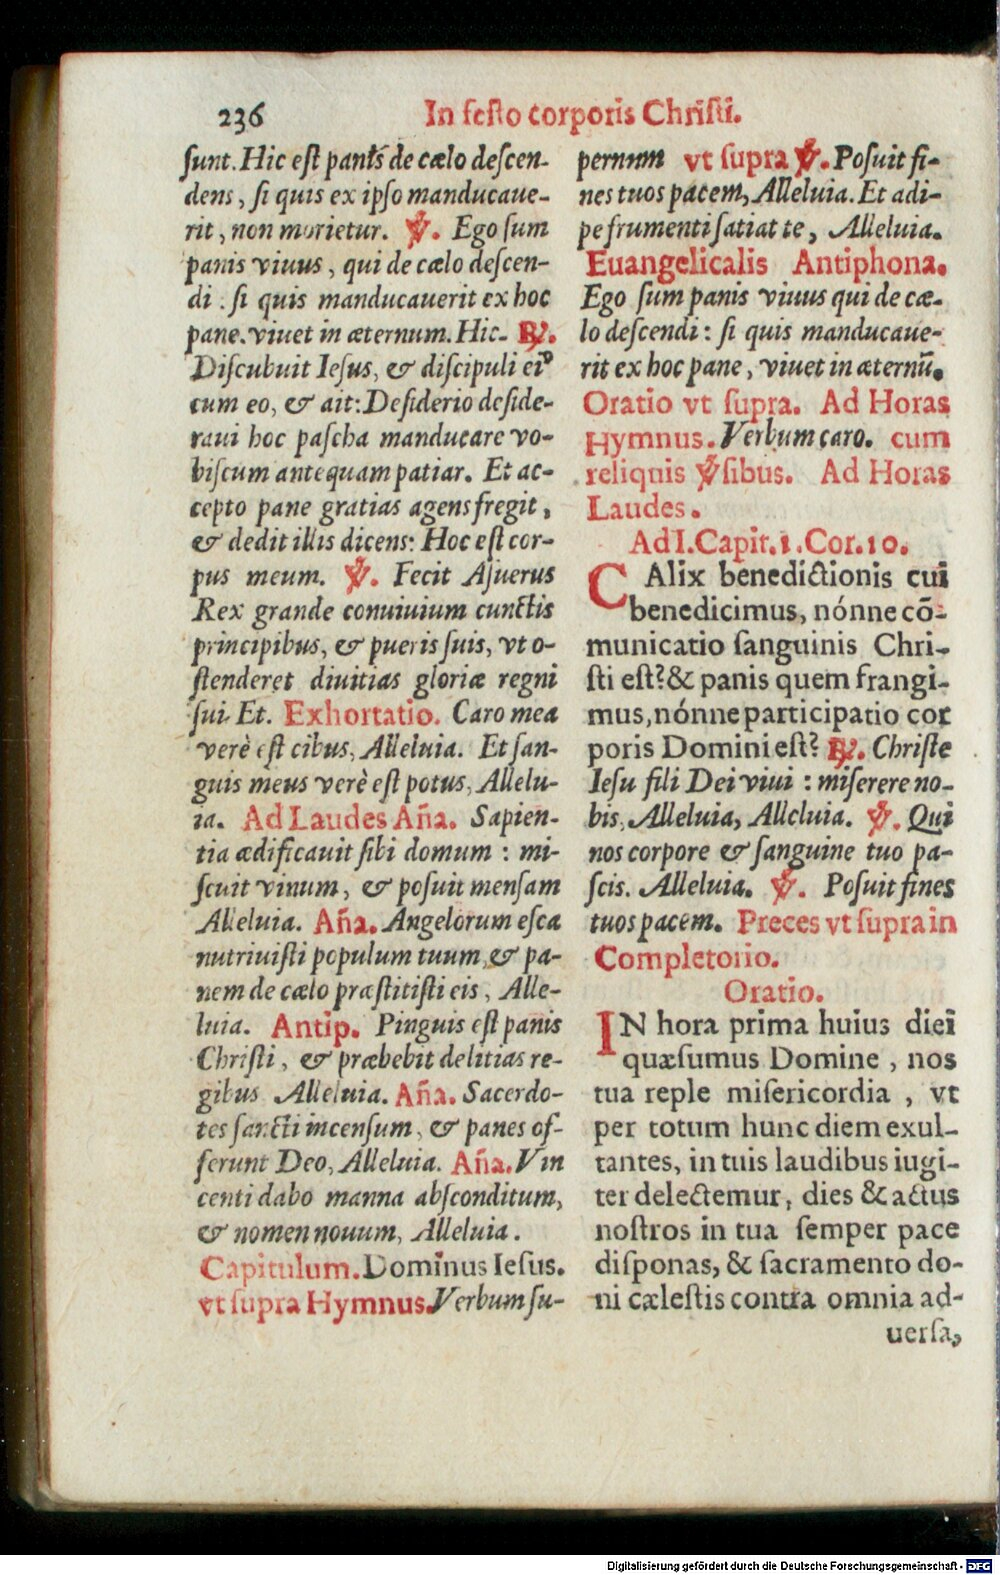 236 In festo corporis Christi.
sunt. Hic est panis de cælo descen-
dens, si quis ex ipso manducaue-
rit, non morietur. ℣. Ego sum
panis viuus, qui de cælo descen-
di: si quis manducauerit ex hoc
pane. viuet in æternum. Hic. ℟.
Discubuit Iesus, & discipuli ei⁹
cum eo, & ait: Desiderio deside-
raui hoc pascha manducare vo-
biscum antequam patiar. Et ac-
cepto pane gratias agens fregit,
& dedit illis dicens: Hoc est cor-
pus meum. ℣. Fecit Asuerus
Rex grande conuiuium cunctis
principibus, & pueris suis, vt o-
stenderet diuitias gloriæ regni
sui. Et. Exhortatio. Caro mea
verè est cibus, Alleluia. Et san-
guis meus verè est potus, Allelu-
ia. Ad Laudes Aña. Sapien-
tia ædificauit sibi domum: mi-
scuit vinum, & posuit mensam
Alleluia. Aña. Angelorum esca
nutriuisti populum tuum, & pa-
nem de cælo præstitisti eis, Alle-
luia. Antip. Pinguis est panis
Christi, & præbebit delitias re-
gibus Alleluia. Aña. Sacerdo-
tes sancti incensum, & panes of-
ferunt Deo, Alleluia. Aña. Vin
centi dabo manna absconditum,
& nomen nouum, Alleluia.
Capitulum. Dominus Iesus.
vt supra Hymnus. Verbum su-
pernum vt supra ℣. Posuit fi-
nes tuos pacem, Alleluia. Et adi-
pe frumenti satiat te, Alleluia.
Euangelicalis Antiphona.
Ego sum panis viuus qui de cæ-
lo descendi: si quis manducaue-
rit ex hoc pane, viuet in æternũ.
Oratio vt supra. Ad Horas
Hymnus. Verbum caro. cum
reliquis ℣sibus. Ad Horas
Laudes.
Ad I. Capit. 1. Cor. 10.
CAlix benedictionis cui
benedicimus, nónne cõ-
municatio sanguinis Chri-
sti est? & panis quem frangi-
mus, nónne participatio cor
poris Domini est? ℟. Christe
Iesu fili Dei viui: miserere no-
bis, Alleluia, Alleluia. ℣. Qui
nos corpore & sanguine tuo pa-
scis. Alleluia. ℣. Posuit fines
tuos pacem. Preces vt supra in
Completorio.
Oratio.
IN hora prima huius diei
quæsumus Domine, nos
tua reple misericordia, vt
per totum hunc diem exul-
tantes, in tuis laudibus iugi-
ter delectemur, dies & actus
nostros in tua semper pace
disponas, & sacramento do-
ni cælestis contra omnia ad-
uersa,
Digitalisierung gefördert durch die Deutsche Forschungsgemeinschaft - DFG